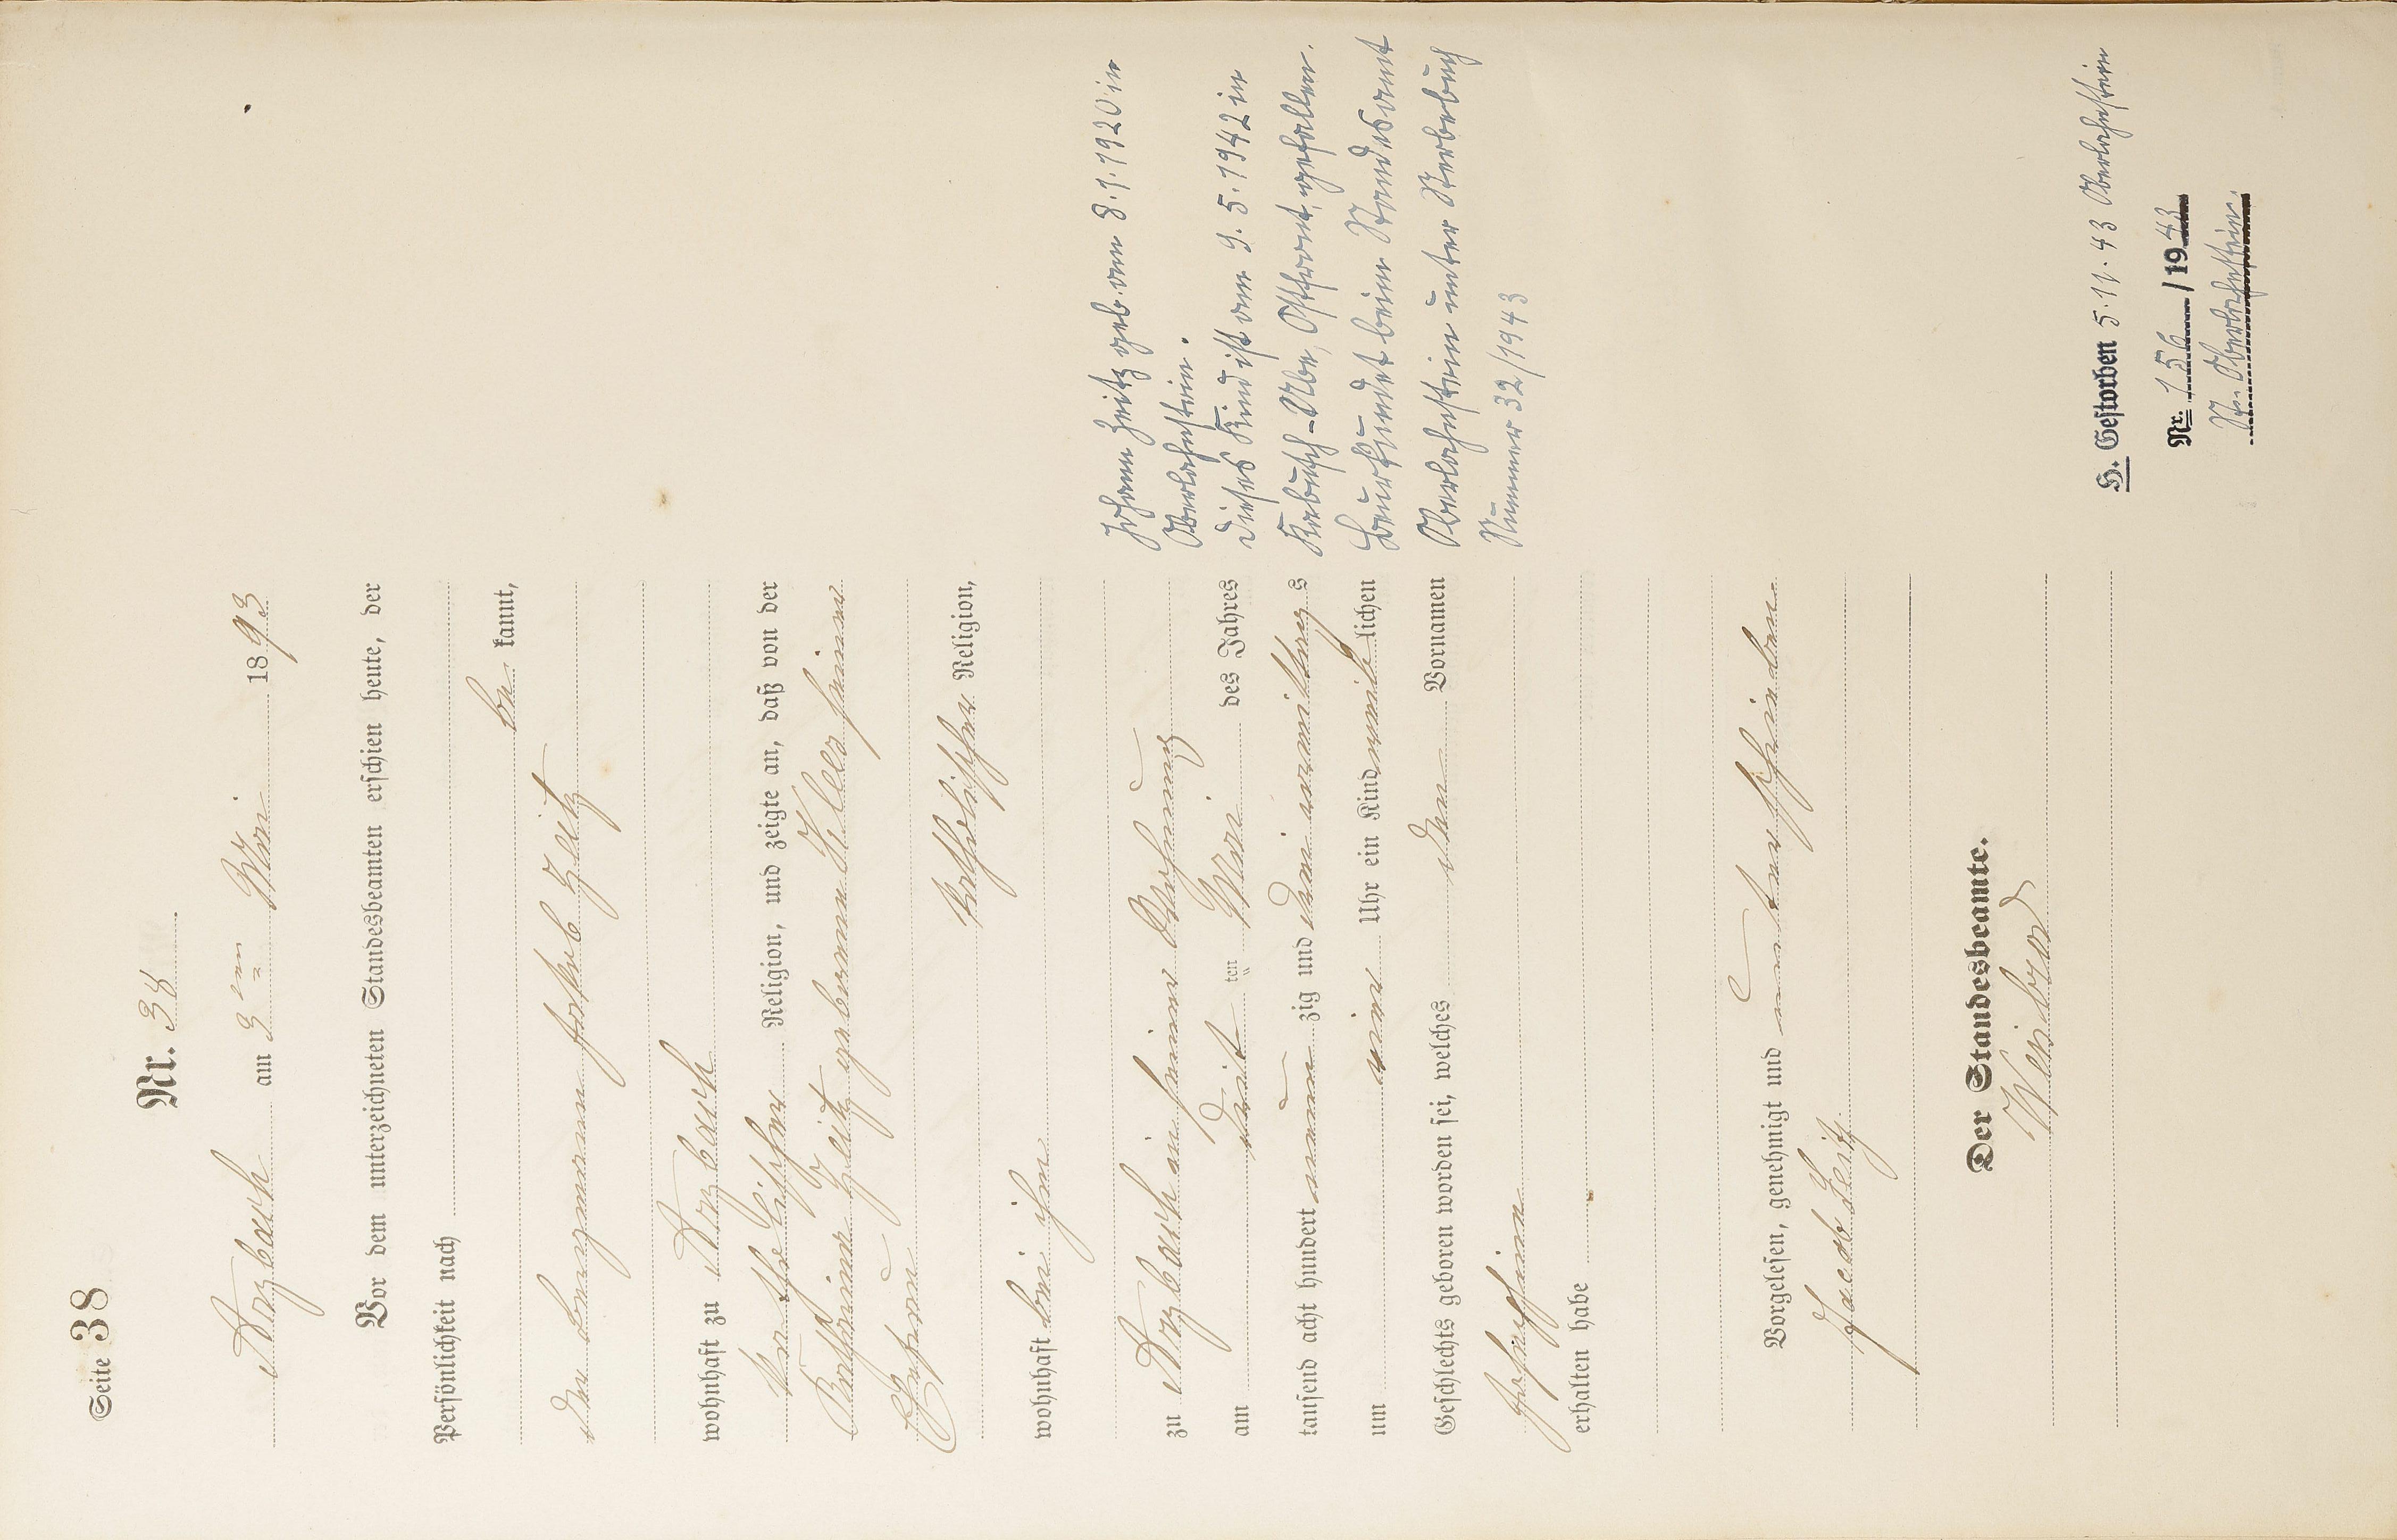 Seite 38
Nr. 38
Arzbach am 3ten Mai 1893
Vor dem unterzeichneten Standesbeamten erschien heute, der
Persönlichkeit nach
be kannt,
der Bergmann Jakob Zeitz
wohnhaft zu Arzbach
katholischer Religion, und zeigte an, daß von der
Katharina Zeitz geborene Klees seiner
Ehefrau
katholischer Religion,
wohnhaft bei ihm
zu Arzbach in seiner Wohnung
am des Jahres
tausend acht hundert neun zig und drei vormittags
um Uhr ein Kind weiblichen
Geschlechts geboren worden sei, welches den Vornamen
Josephina
erhalten habe
Vorgelesen, genehmigt und unterschrieben
Jacob Zeitz
Der Standesbeamte.
Johann Zeitz geb. am 8.1.1920 in
Oberlahnstein.
Dieses Kind ist am 9.5.1942 in
Ostfront, gefallen.
Beurkundet beim Standesamt
Oberlahnstein unter Sterbebuch
Nummer 32/1943
H. Gestorben 5.11.43 Oberlahnstein
Nr. 156/1943
St. Oberlahnstein.